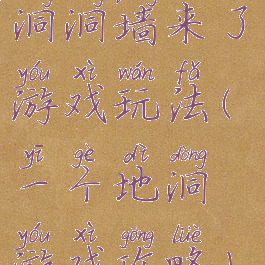 洞洞墙来了
yóu xì wán fǎ
游戏玩法(
yī gè dì dòng
一个地洞
yóu xì gōng lüè
游戏攻略)